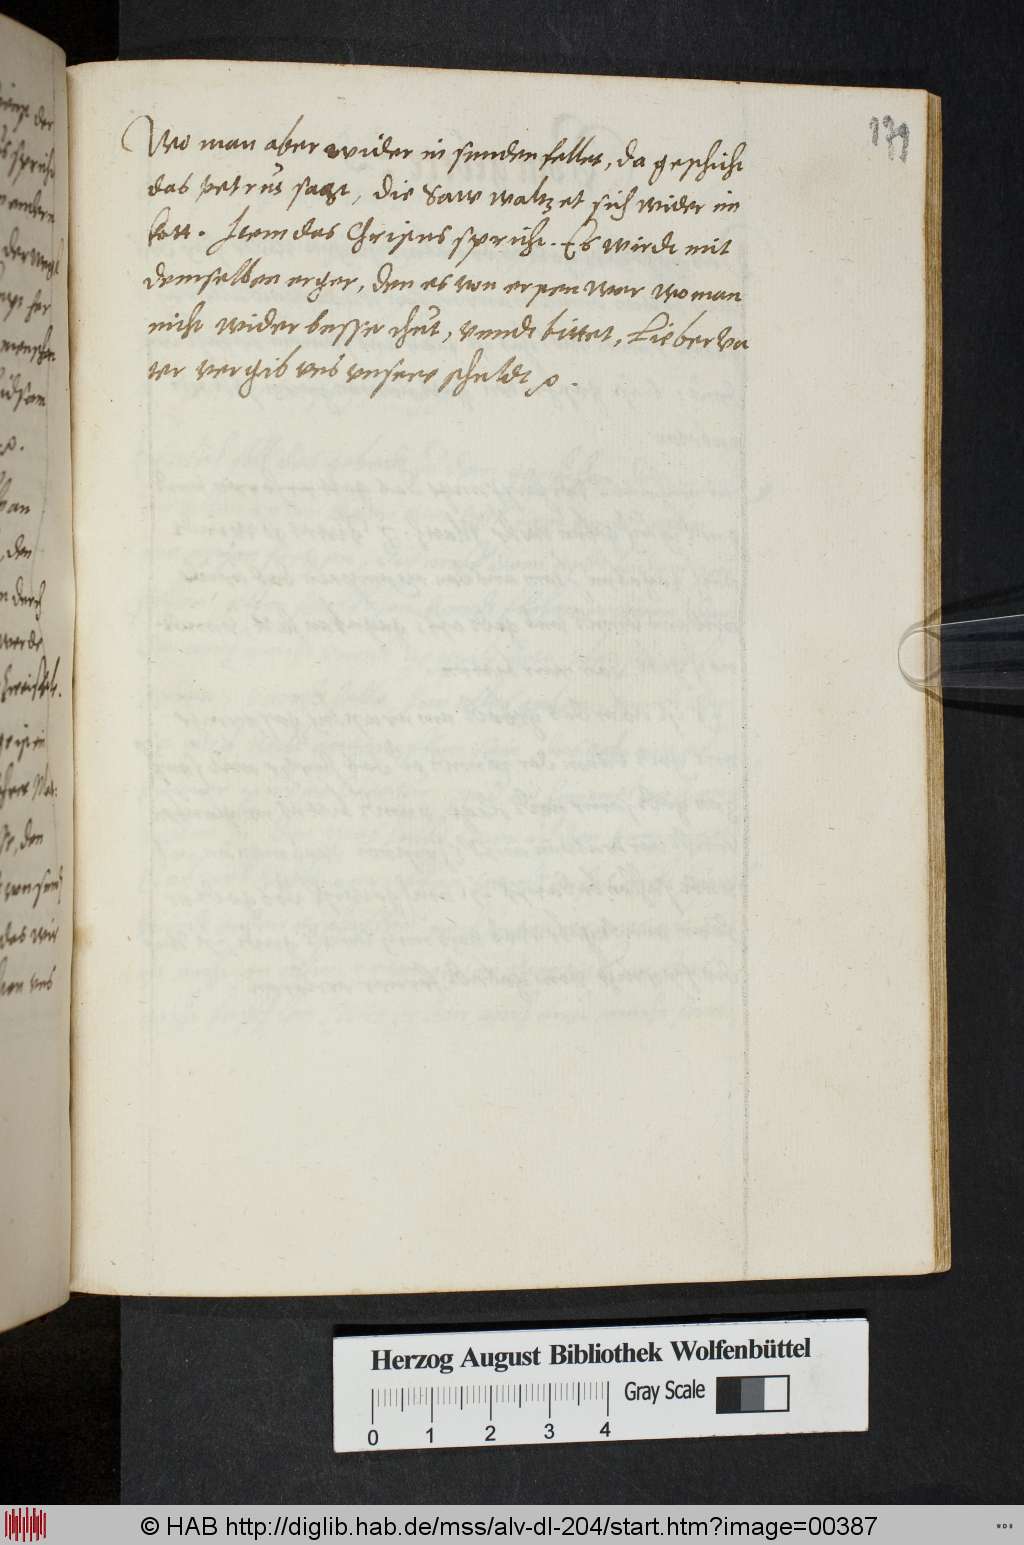 179
Wo man aber wider in sunden fellet, da geschicht
das petrus sagt, die Saw waltzet sich wider im
kott. Item das Christus spricht. Es wirdt mit
demselben erger, den es von ersten war wo man
nicht wider busse thut, vnndt bittet, Lieber va
ter vergib vns vnsere schuldt
der
spricht
andern
der
her
menschen
an
den
durch
werde
den
das wir
vns
Herzog August Bibliothek Wolfenbüttel
Gray Scale
0 1 2 3 4
© HAB http://diglib.hab.de/mss/alv-dl-204/start.htm?image=00387